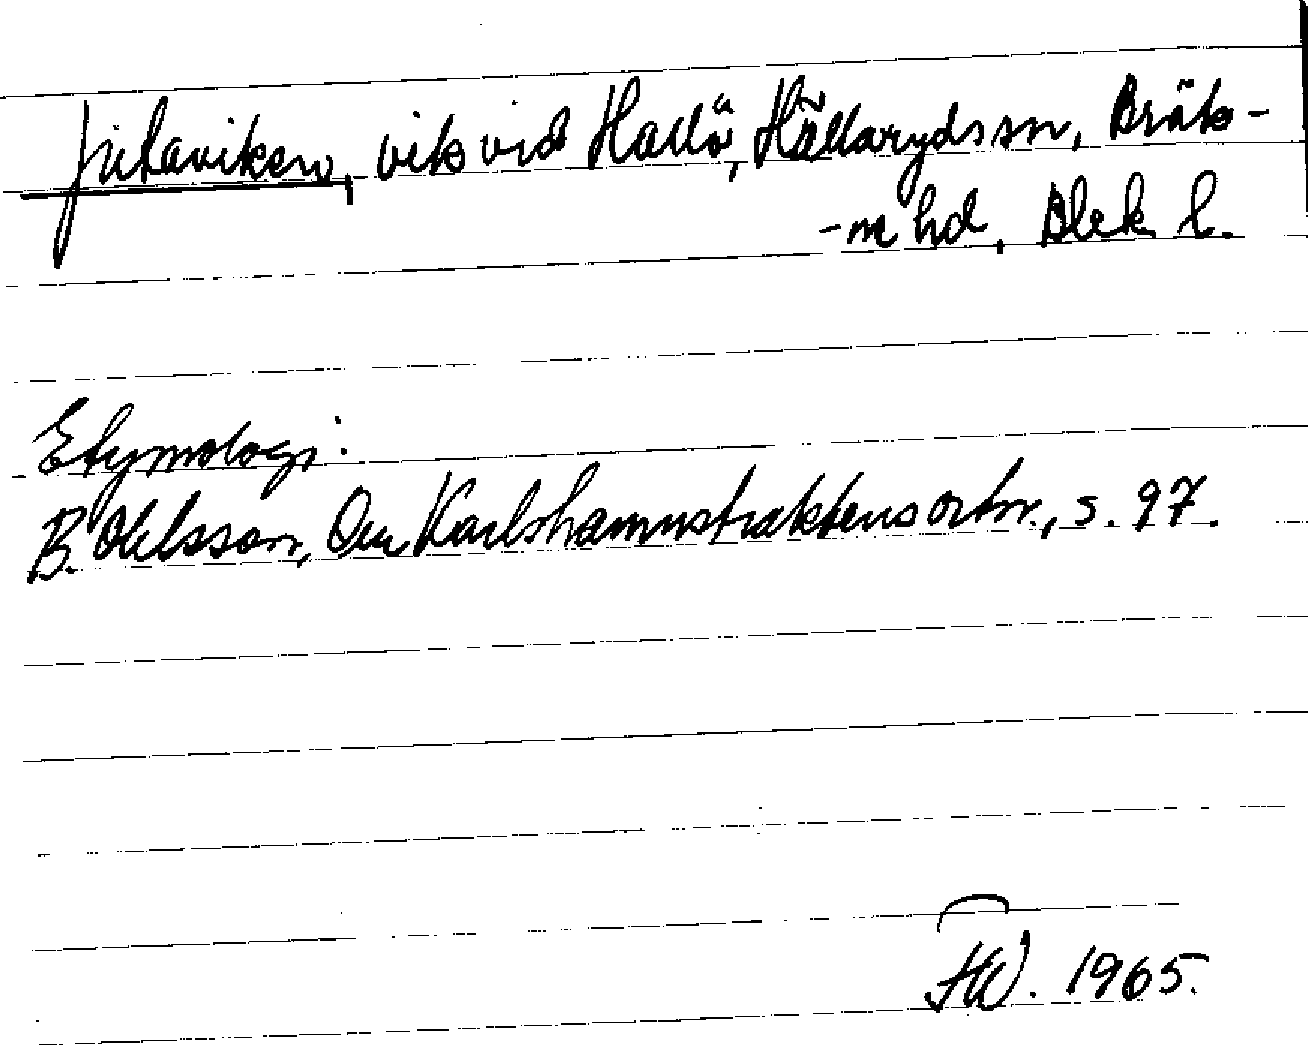 Jutaviken, vik vid Hallö, Hällaryds sn, Bräk-
-ne hd, Blek. l.
Etymologi:
B. Ohlsson, Om Karlshamnstraktens ortn., s. 97.
HW. 1965.